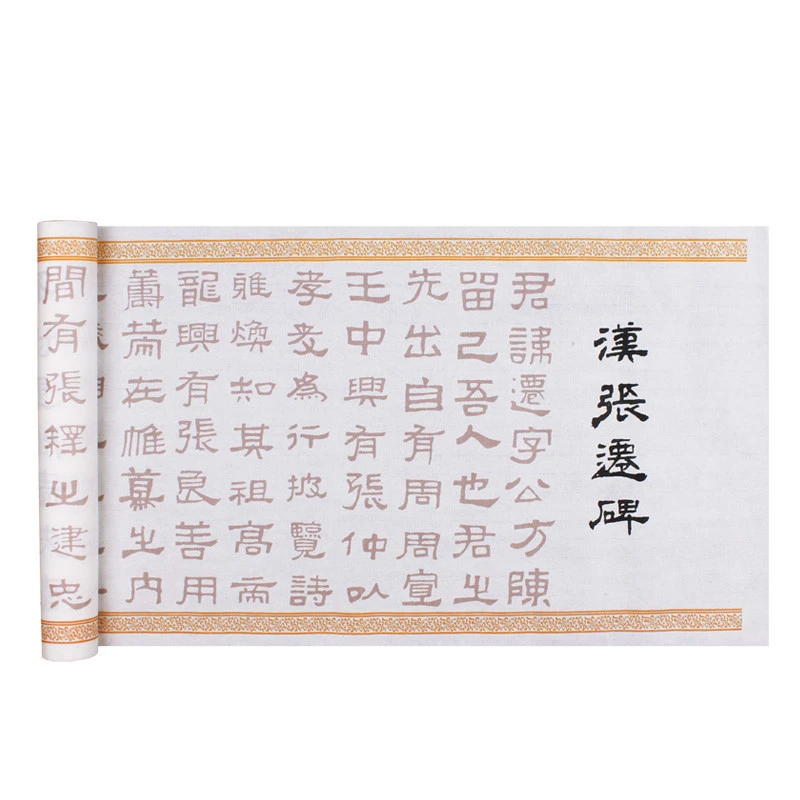 漢張遷碑
君諱遷字公方陳
留己吾人也君之
先出自有周周宣
王中興有張仲以
孝友為行披覽詩
雅煥知其祖高帝
龍興有張良善用
籌策在帷幕之内
間有張釋之建忠